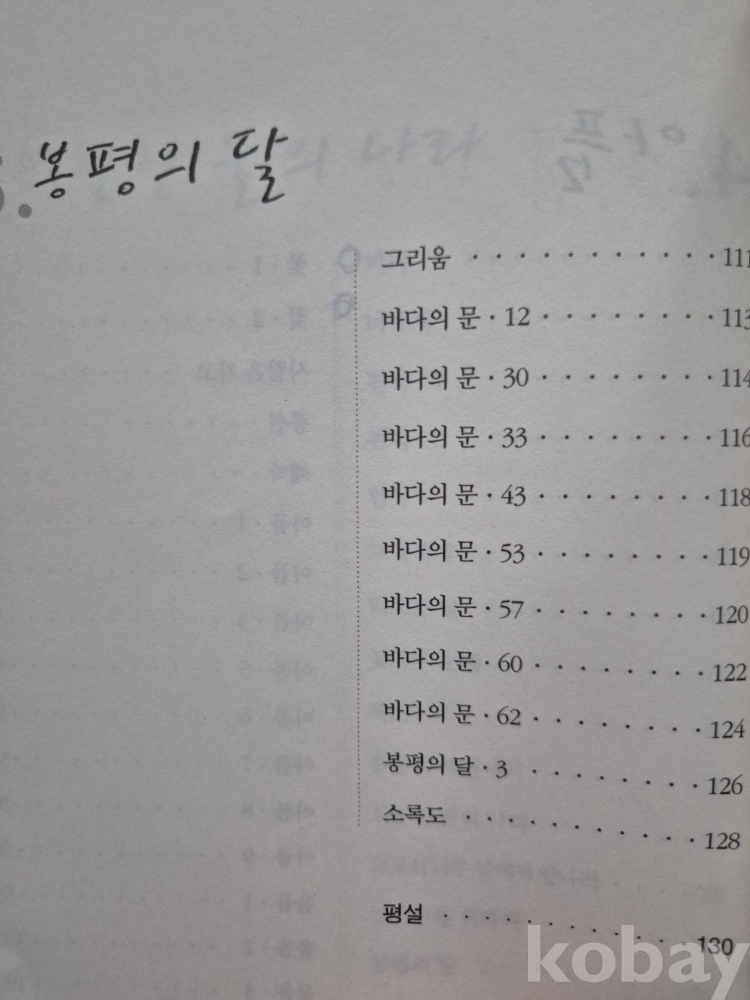 봉평의 달
그리움 · · · · · · · · · · · 111
바다의 문 · 12 · · · · · · · · 113
바다의 문 · 30 · · · · · · · · 114
바다의 문 · 33 · · · · · · · · 116
바다의 문 · 43 · · · · · · · · 118
바다의 문 · 53 · · · · · · · · 119
바다의 문 · 57 · · · · · · · · 120
바다의 문 · 60 · · · · · · · · 122
바다의 문 · 62 · · · · · · · · 124
봉평의 달 · 3 · · · · · · · · 126
소록도 · · · · · · · · · · · 128
평설 · · · · · · · · · · · · 130
kobay